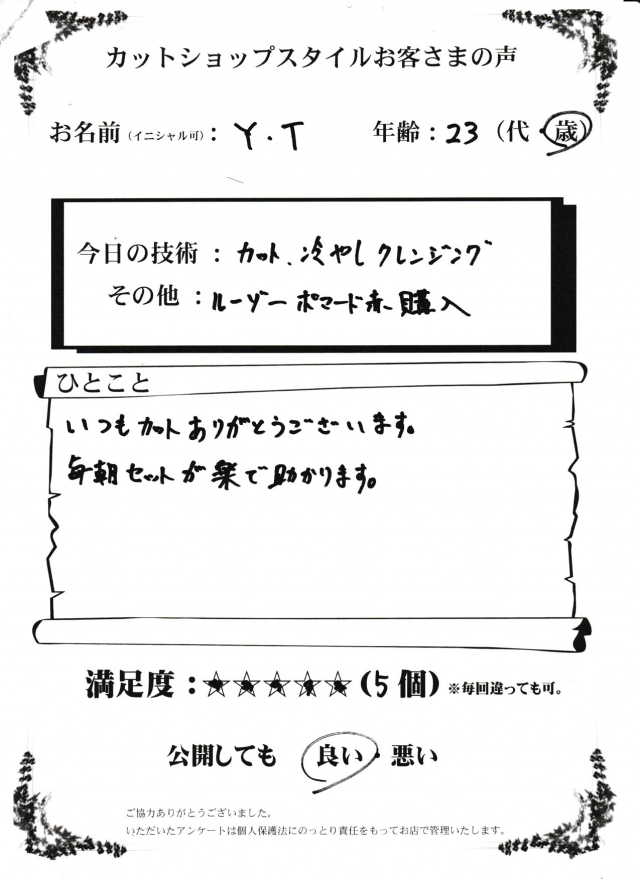 カットショップスタイルお客さまの声
お名前(イニシャル可): Y.T 年齢:23(代・歳)
今日の技術 : カット、冷やしクレンジング
その他 : ルーゾーポマード赤購入
ひとこと
いつもカットありがとうございます。
毎朝セットが楽で助かります。
満足度:★★★★★(5個)※毎回違っても可。
公開しても 良い・悪い
ご協力ありがとうございました。
いただいたアンケートは個人保護法にのっとり責任をもってお店で管理いたします。